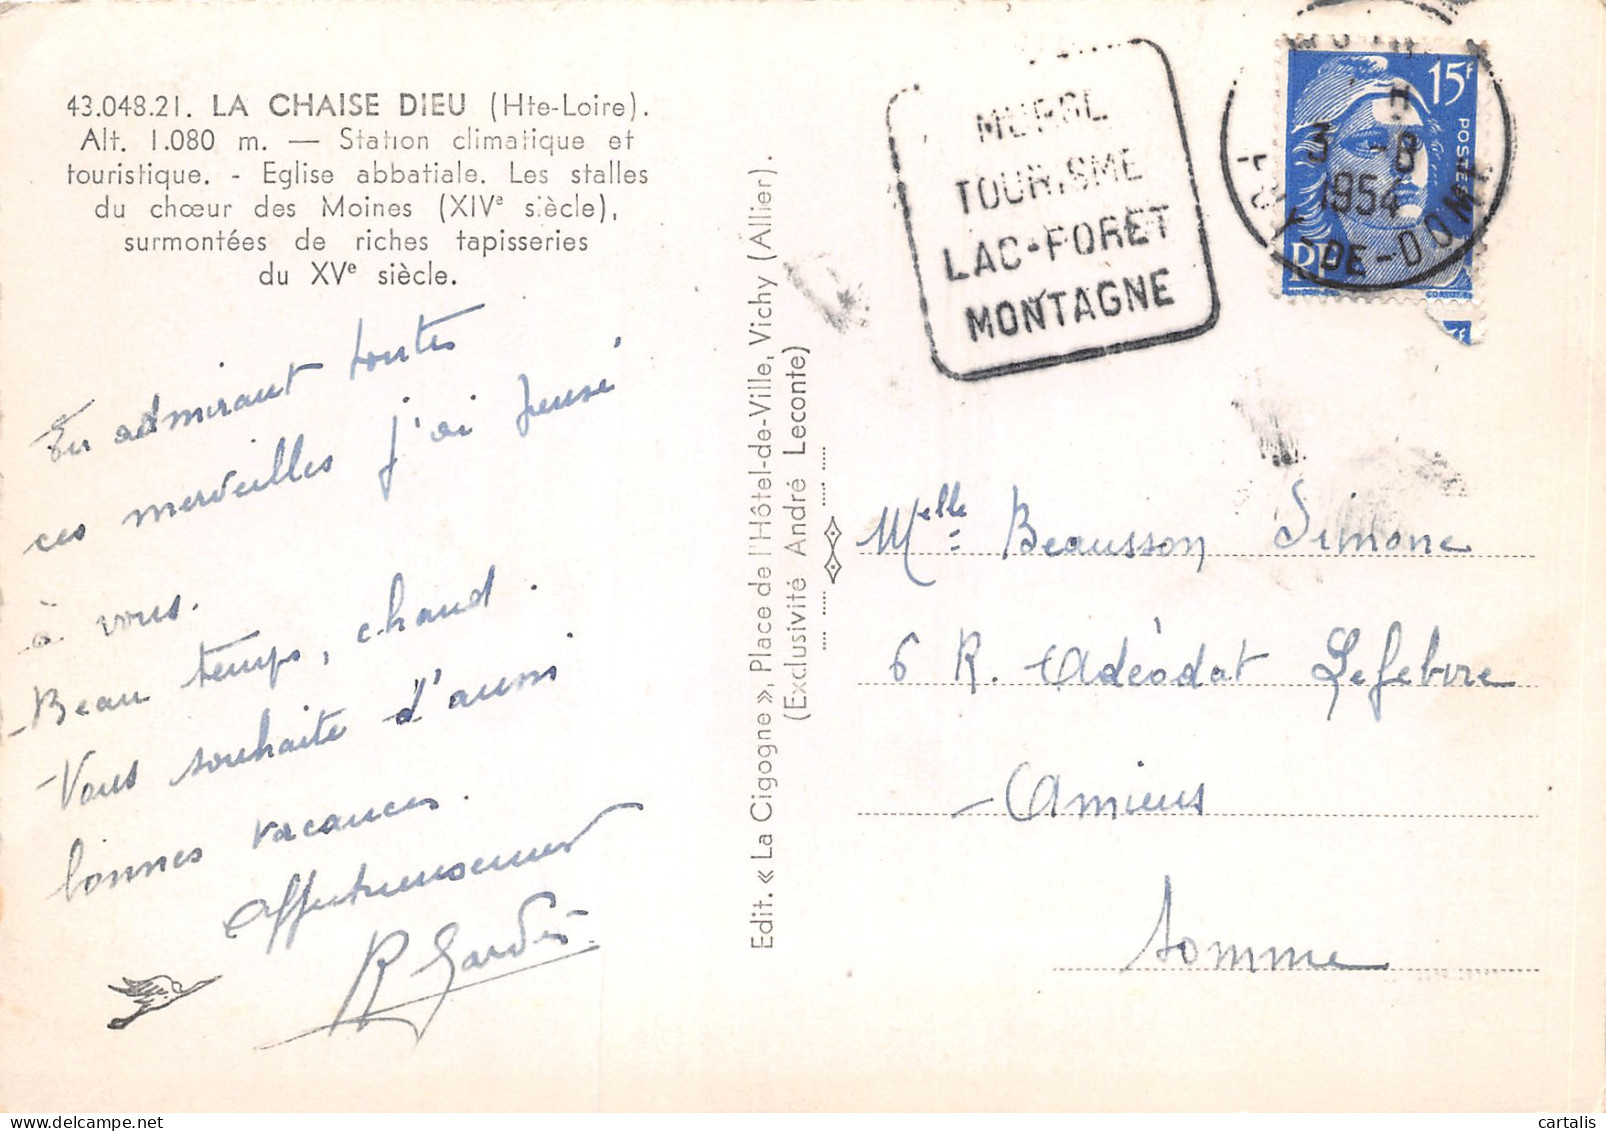 43.048.21. LA CHAISE DIEU (Hte-Loire).
Alt. 1.080 m. — Station climatique et
touristique. - Eglise abbatiale. Les stalles
du chœur des Moines (XIVe siècle),
surmontées de riches tapisseries
du XVe siècle.
En admirant toutes
ces merveilles j'ai pensé
à vous.
Beau temps, chaud.
Vous souhaite d'aussi
bonnes vacances.
Affectueusement
R Gardès
Edit. « La Cigogne », Place de l'Hôtel-de-Ville, Vichy (Allier).
(Exclusivité André Leconte)
TOURISME
LAC-FORET
MONTAGNE
15F
POSTES
RF
3 -8
1954
PUY-DE-DOME
Melle Beausson Simone
6 R. Adéodat Lefebvre
Amiens
Somme
cartalis